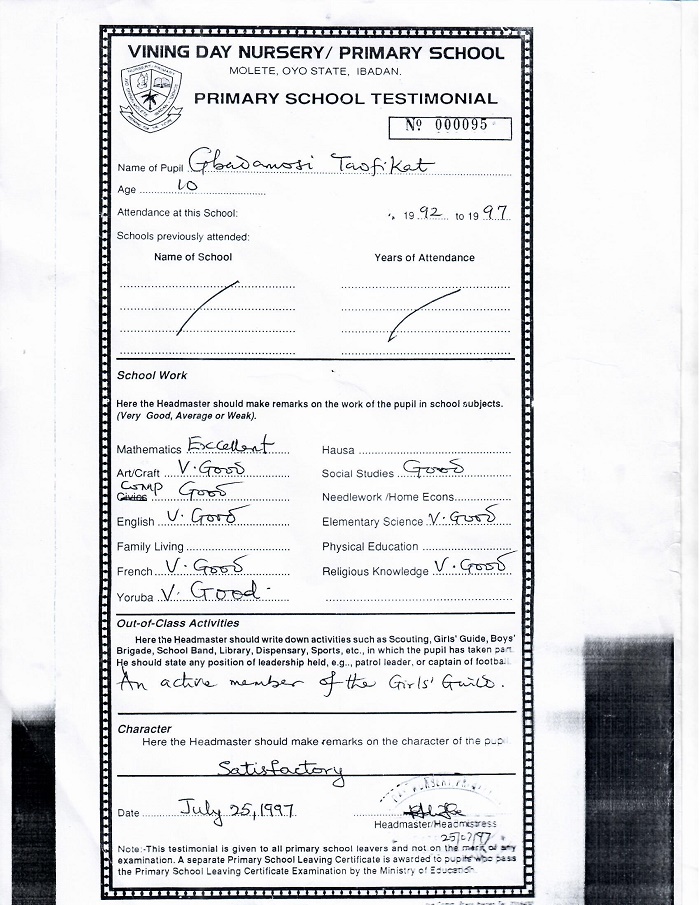 VINING DAY NURSERY/ PRIMARY SCHOOL
MOLETE, OYO STATE, IBADAN.
PRIMARY SCHOOL TESTIMONIAL
Nº 000095
Name of Pupil Gbadamosi Taofikat
Age 10
Attendance at this School: 19 92 to 19 97
Schools previously attended:
Name of School Years of Attendance
School Work
Here the Headmaster should make remarks on the work of the pupil in school subjects.
(Very Good, Average or Weak).
Mathematics Excellent Hausa
Art/Craft V. Good Social Studies Good
Comp
Civics Good Needlework /Home Econs.
English V. Good Elementary Science V. Good
Family Living Physical Education
French V. Good Religious Knowledge V. Good
Yoruba V. Good
Out-of-Class Activities
Here the Headmaster should write down activities such as Scouting, Girls' Guide, Boys'
Brigade, School Band, Library, Dispensary, Sports, etc., in which the pupil has taken part.
He should state any position of leadership held, e.g., patrol leader, or captain of football
An active member of the Girls' Guild.
Character
Here the Headmaster should make remarks on the character of the pupil
Satisfactory
Date July 25, 1997
Headmaster/Headmistress
25/07/97
Note:-This testimonial is given to all primary school leavers and not on the merit of any
examination. A separate Primary School Leaving Certificate is awarded to pupils who pass
the Primary School Leaving Certificate Examination by the Ministry of Education